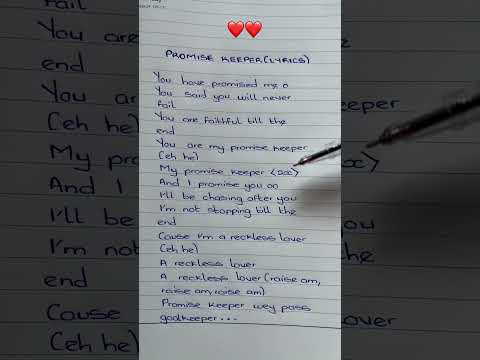 PROMISE KEEPER (LYRICS)
You have promised me o
You said you will never
fail
You are faithful till the
end
You are my promise keeper
(eh he)
My promise keeper <sec>
And I promise you oo
I'll be chasing after you
I'm not stopping till the
end
Cause I'm a reckless lover
(eh he)
A reckless lover
A reckless lover (raise am,
raise am, raise am)
Promise keeper wey pass
goalkeeper...